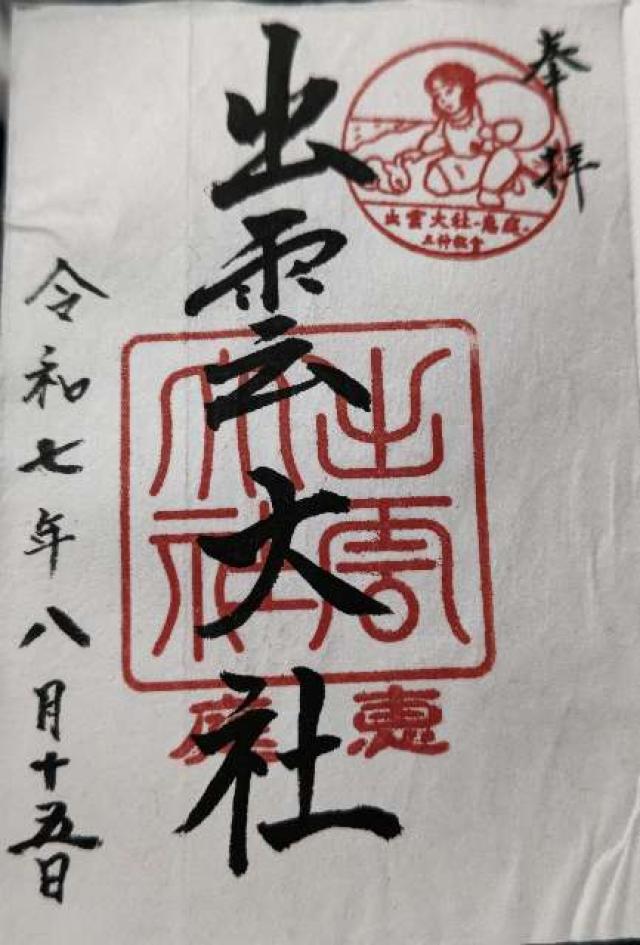 奉拝
出雲大社・恵庭・
出雲大社
出雲
大社
恵庭
令和七年八月十五日